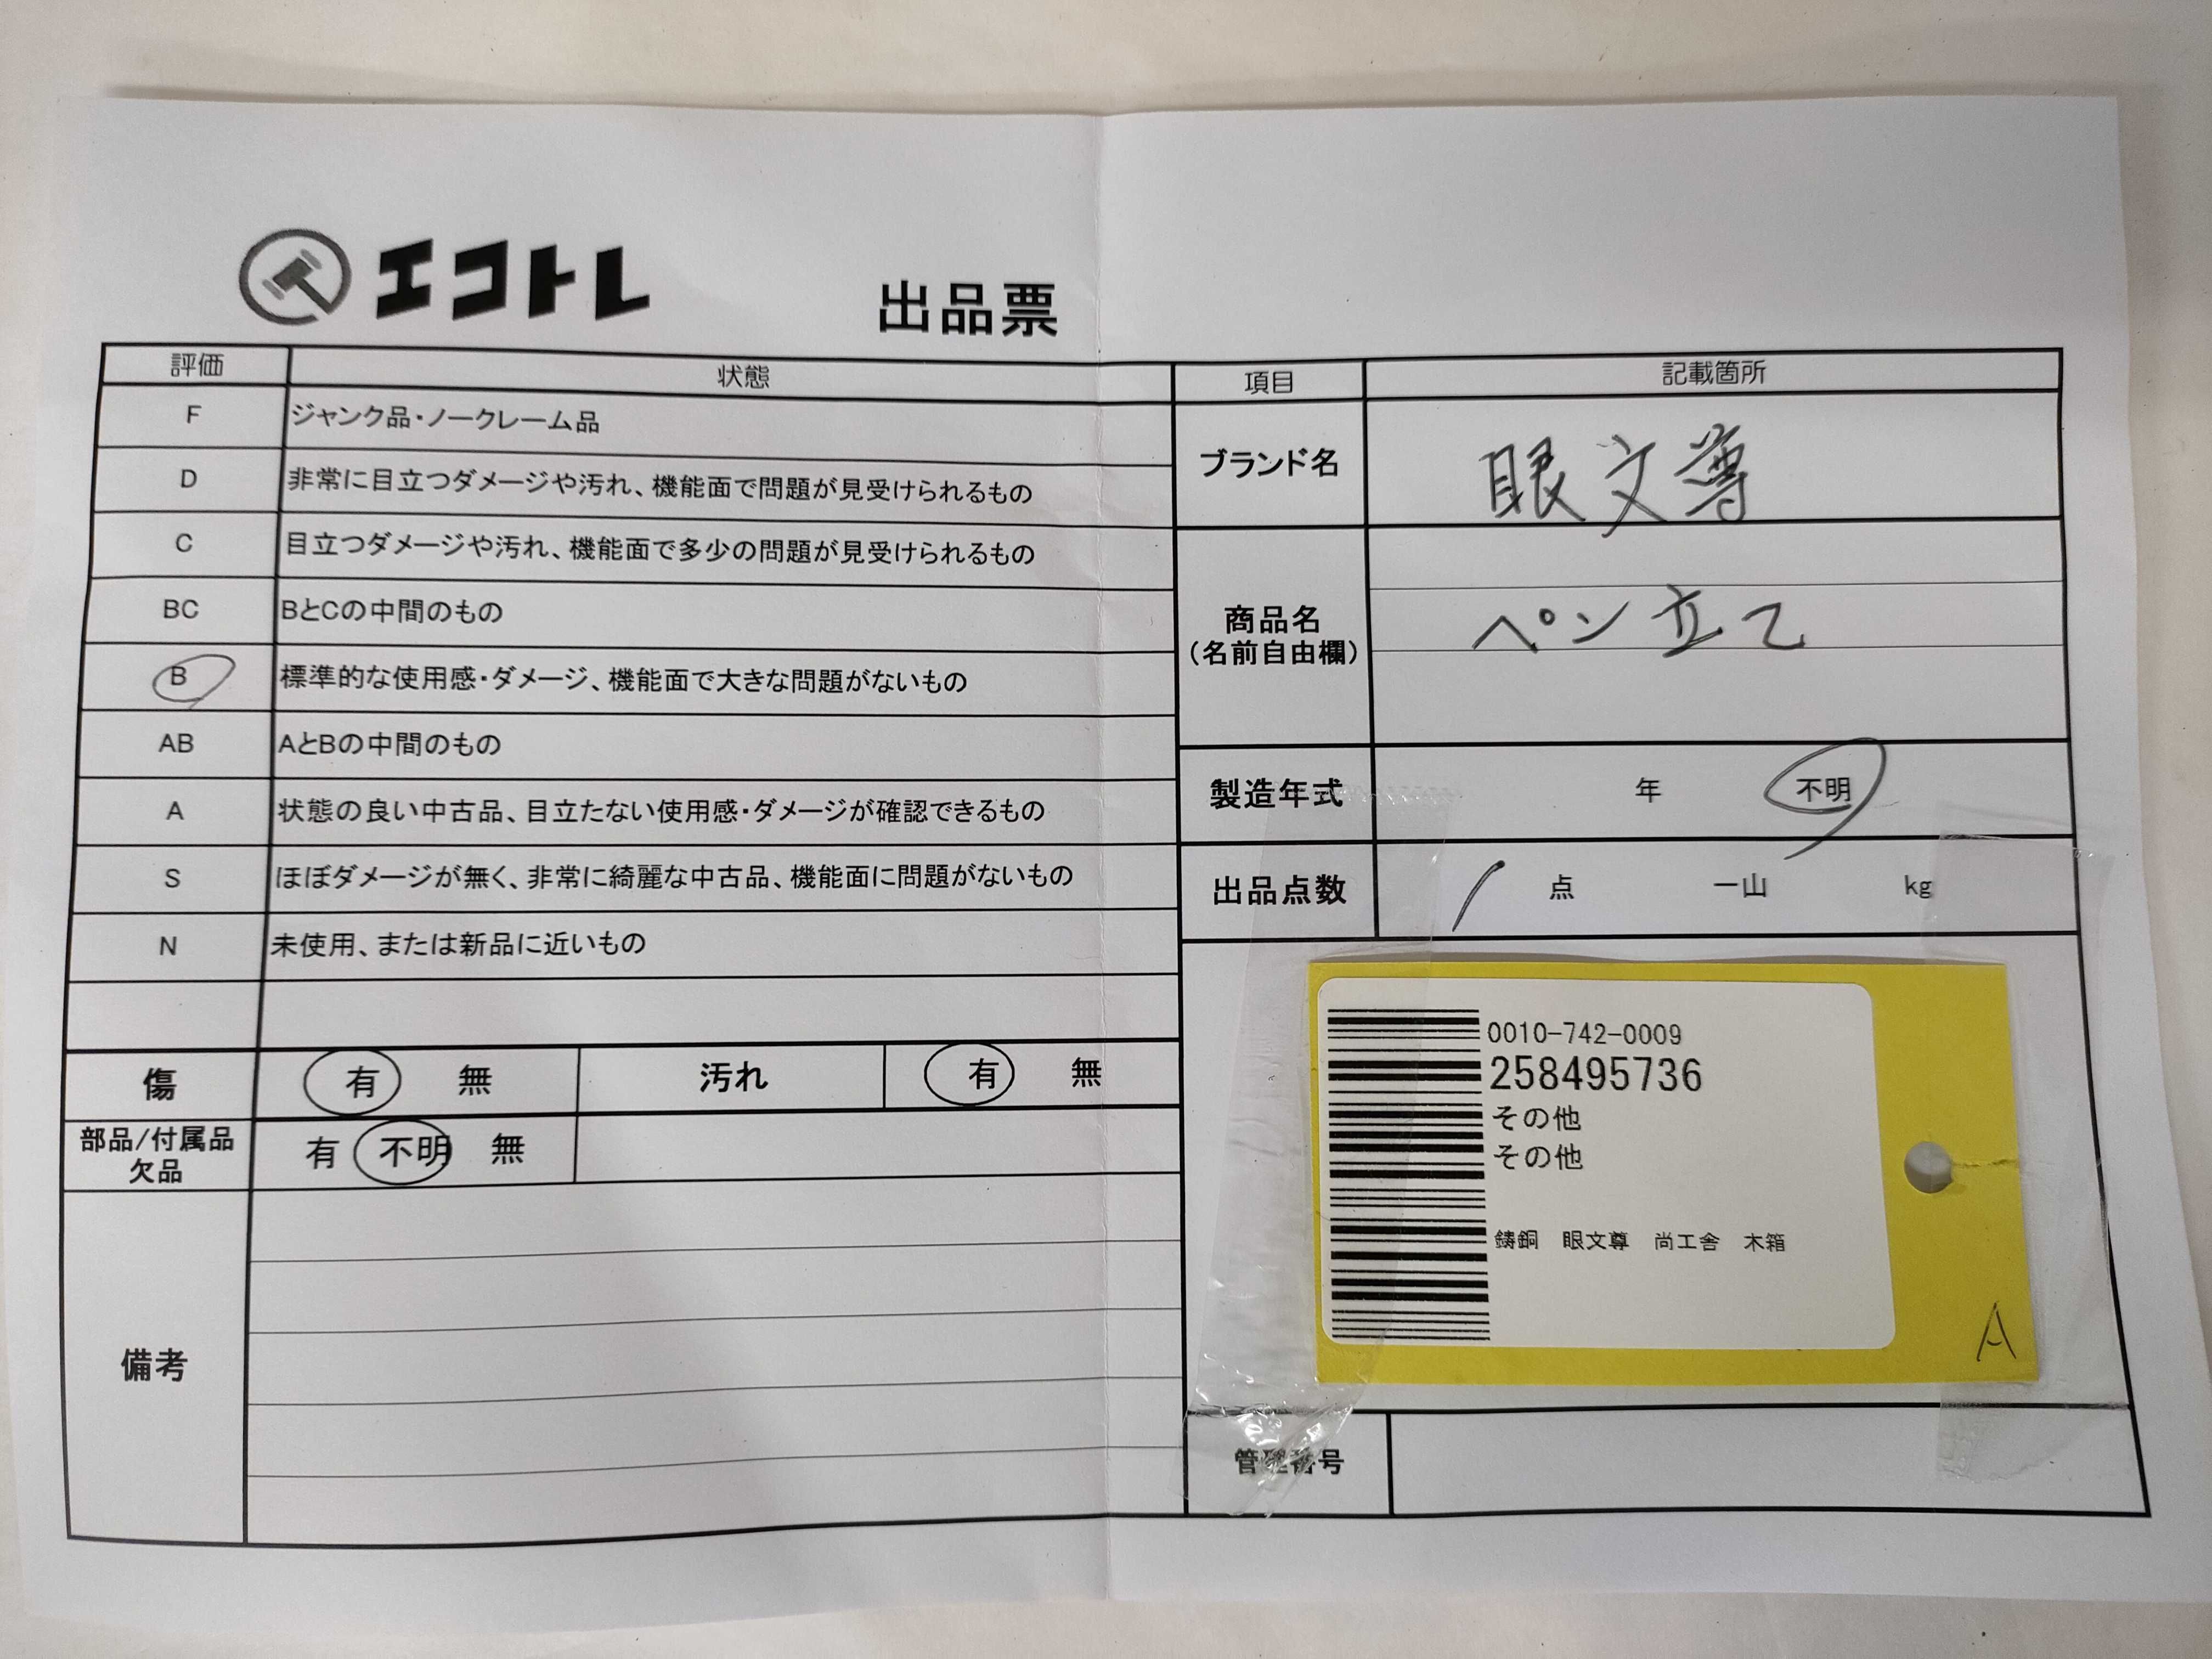 エコトレ
出品票
評価 状態
F ジャンク品・ノークレーム品
D 非常に目立つダメージや汚れ、機能面で問題が見受けられるもの
C 目立つダメージや汚れ、機能面で多少の問題が見受けられるもの
BC BとCの中間のもの
B 標準的な使用感・ダメージ、機能面で大きな問題がないもの
AB AとBの中間のもの
A 状態の良い中古品、目立たない使用感・ダメージが確認できるもの
S ほぼダメージが無く、非常に綺麗な中古品、機能面に問題がないもの
N 未使用、または新品に近いもの
傷 有 無 汚れ 有 無
部品/付属品
欠品
有 不明 無
備考
項目 記載箇所
ブランド名 眼文尊
商品名
(名前自由欄)
ペン立て
製造年式 年 不明
出品点数 1 点 一山 kg
0010-742-0009
258495736
その他
その他
鋳銅 眼文尊 尚工舎 木箱
A
管理番号